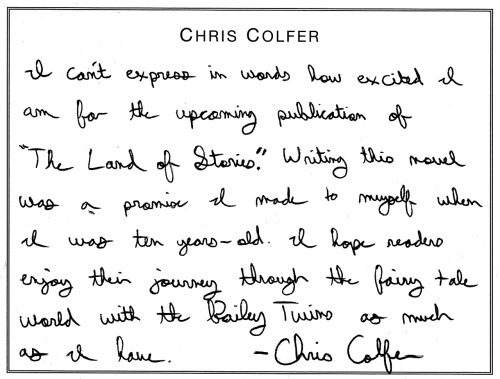 CHRIS COLFER
I can't express in words how excited I
am for the upcoming publication of
"The Land of Stories." Writing this novel
was a promise I made to myself when
I was ten years-old. I hope readers
enjoy their journey through the fairy tale
world with the Bailey Twins as much
as I have. - Chris Colfer